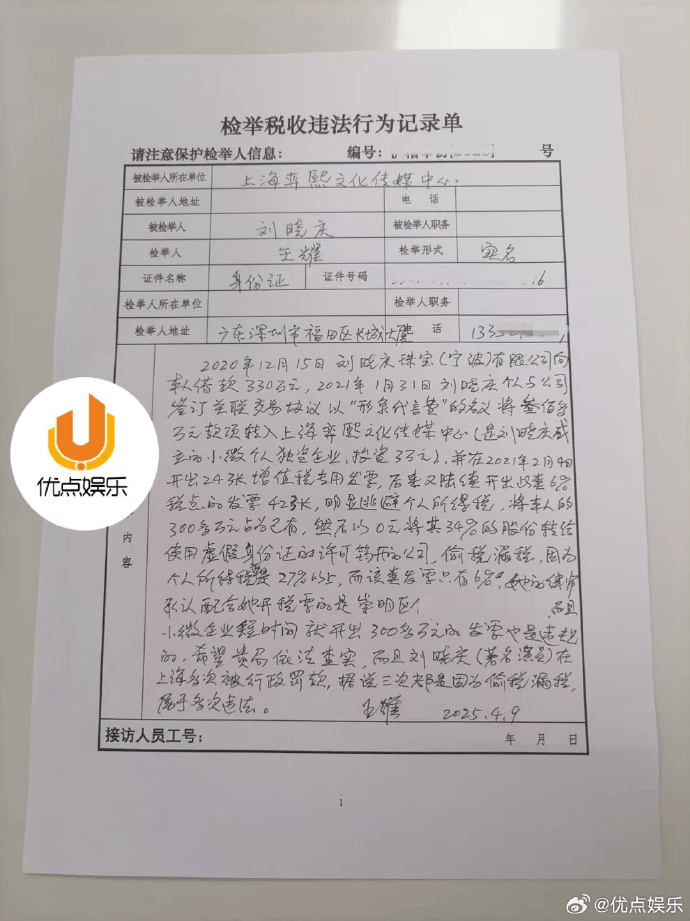 检举税收违法行为记录单
请注意保护检举人信息： 编号： 号
被检举人所在单位 上海弈熙文化传媒中心
被检举人地址 电 话
被检举人 刘晓庆 被检举人职务
检举人 王耀 检举形式 实名
证件名称 身份证 证件号码 16
检举人所在单位 检举人职务
检举人地址 广东深圳市福田区长城大 话 133
内容
2020年12月15日刘晓庆珠宝(宁波)有限公司向
本人借款330万元，2021年1月31日刘晓庆个人与公司
签订关联交易协议以“形象代言费”的名义将叁佰多
万元款项转入上海弈熙文化传媒中心(是刘晓庆成
立的小微个人独资企业，投资3万元)，并在2021年2月4日
开出24张增值税专用发票，后来又陆续开出此套6%
税点的发票42张，明显逃避个人所得税，将本人的
300多万元占为己有，然后以0元将其34%的股份转给
使用虚假身份证的许可筠开的公司，偷税漏税，因为
个人所得税是27%以上，而该套发票只有6%，她的律师
承认配合她开税票的是崇明区 而且
小微企业短时间就开出300多万元的发票也是违规
的，希望贵局依法查实，而且刘晓庆(著名演员)在
上海多次被行政罚款，据说三次都是因为偷税漏税，
属于多次违法。 王耀 2025.4.9
接访人员工号： 年 月 日
1
优点娱乐
@优点娱乐